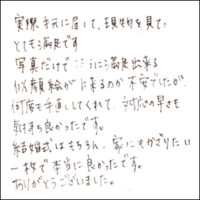 実際手元に届して、現物を見て
とても満足です
写真だけで こんなに満足出来る
似顔絵が出来るのか不安でしたが、
何度も手直ししてくれて、対応の早さも
気持ち良かったです。
結婚式はもちろん、家にもかざりたい
一枚で本当に良かったです。
ありがとうございました。